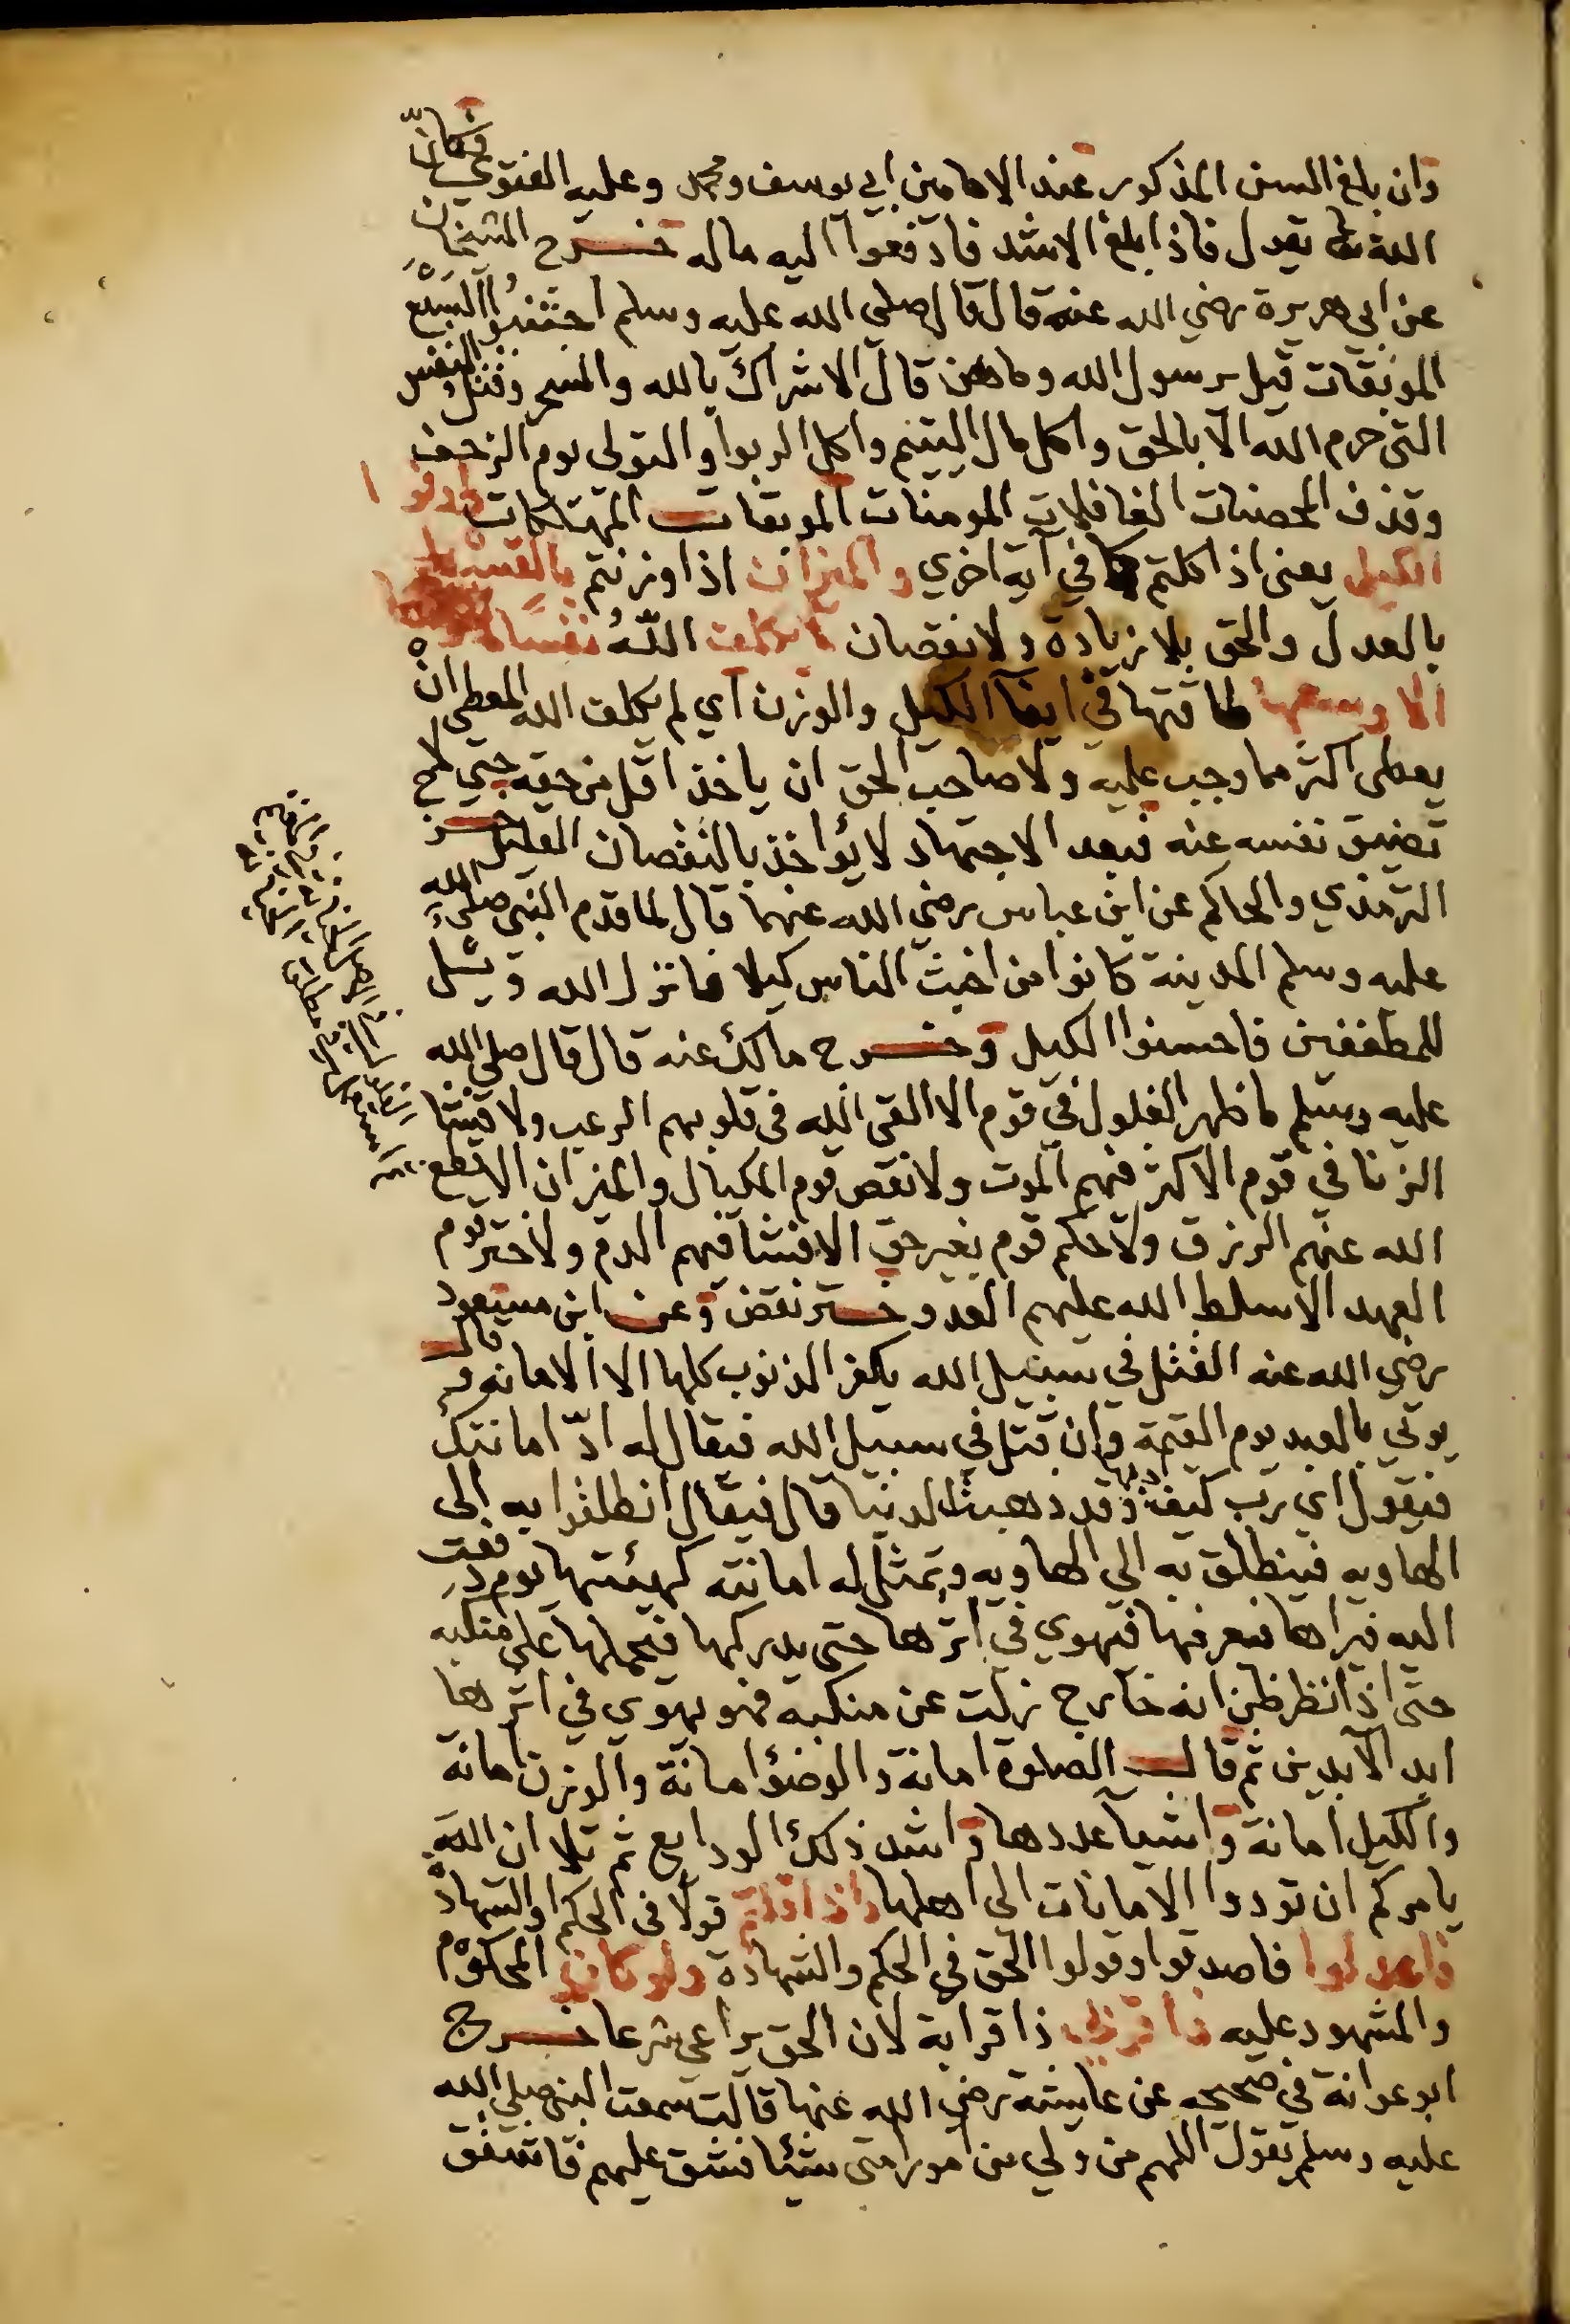 وان بلغ السن المذكور عند الامامين ابي يوسف ومحمد وعليه الفتوي فكانّ
الله تعا يقول فاذا بلغ الاشد فادفعوا اليه ماله خـــرج الشيخان
عن ابي هريرة رضي الله عنه قال قال صلي الله عليه وسلم اجتنبوا السبع
الموبقات قيل يرسول الله وما هن قال الاشراك بالله والسحر وقتل النفس
التى حرم الله الا بالحق واكل مال اليتيم واكل الربوا والتولي يوم الزحف
وقذف المحصنات الغافلات المومنات الموبقات المهتلكات واوفوا
الكيل يعنى اذا كلتم كما في آية اخري والميزان اذا وزنتم بالقسط
بالعدل والحق بلا زيادة ولا نقصان لا يكلف اللّهُ نفسا
الا وسعها طاقتها في ايفآ الكيل والوزن اي لم يكلف الله المعطي ان
يعطى اكثر مما وجب عليه ولا صاحب الحق ان ياخذ اقل من حقه حتي لا
تضيق نفسه عنه فبعد الاجتهاد لا يؤاخذ بالنقصان القليل خـــرج
الترمذي والحاكم عن ابن عباس رضي الله عنهما قال لما قدم النبى صلى الله
عليه وسلم المدينة كانوا من اخبث الناس كيلا فانزل الله ويـل
للمطففين فاحسنوا الكيل وخـــرج مالك عنه قال قال صلى الله
عليه وسلم ما ظهر الغلول في قوم الا القى الله فى قلوبهم الرعب ولا فشا
الزنا في قوم الا كثر فيهم الموت ولا نقص قوم المكيال والميزان الا قطع
الله عنهم الرزق ولا حكم قوم بغير حق الا فشا فيهم الدم ولا ختر قوم
العهد الا سلط الله عليهم العدو ختر نقض وعن ابن مسعود
رضي الله عنه القتل في سبيل الله يكفر الذنوب كلها الا الامانه قال
يوتي بالعبد يوم القيمة وان قتل في سبيل الله فيقال له ادّ امانتك
فيقول اي رب كيف وقد ذهبت الدنيا قال فيقال انطلقوا به الى
الهاويه فينطلق به الي الهاويه وتمثل له امانته كهيئتها يوم دفعت
اليه فيراها فيعرفها فيهوي في اثرها حتى يدركها فيحملها على منكبه
حتى اذا نظر ظن انه خارج زلت عن منكبه فهو يهوي في اثرها
ابد الآبدين ثم قال الصلوة امانة والوضؤ امانة والوزن امانة
والكيل امانة واشيآ عددها واشد ذلك الودايع ثم تلا ان الله
يامركم ان تودوا الامانات الى اهلها واذا قلتم قولا فى الحكم والشهادة
فاعدلوا فاصدقوا وقولوا الحق في الحكم والشهادة ولو كان المحكوم
والمشهود عليه ذا قربى ذا قرابة لان الحق يراعي شرعا خـــرج
ابو عوانة في صحيحه عن عايشة رضي الله عنها قالت سمعت النبى صلى الله
عليه وسلم يقول اللهم من ولي من امور امتى شيئا فشق عليهم فاشقق